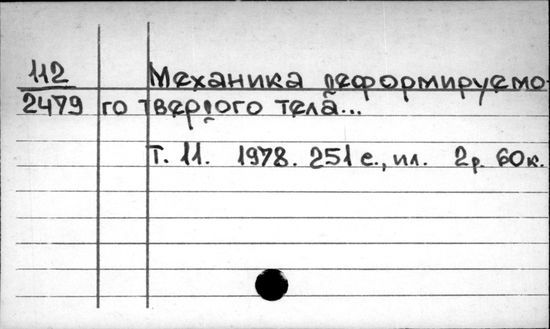 112 Механика деформируемо-
2479 го твердого тела...
Т. 11. 1978. 251 с., ил. 2р. 60к.